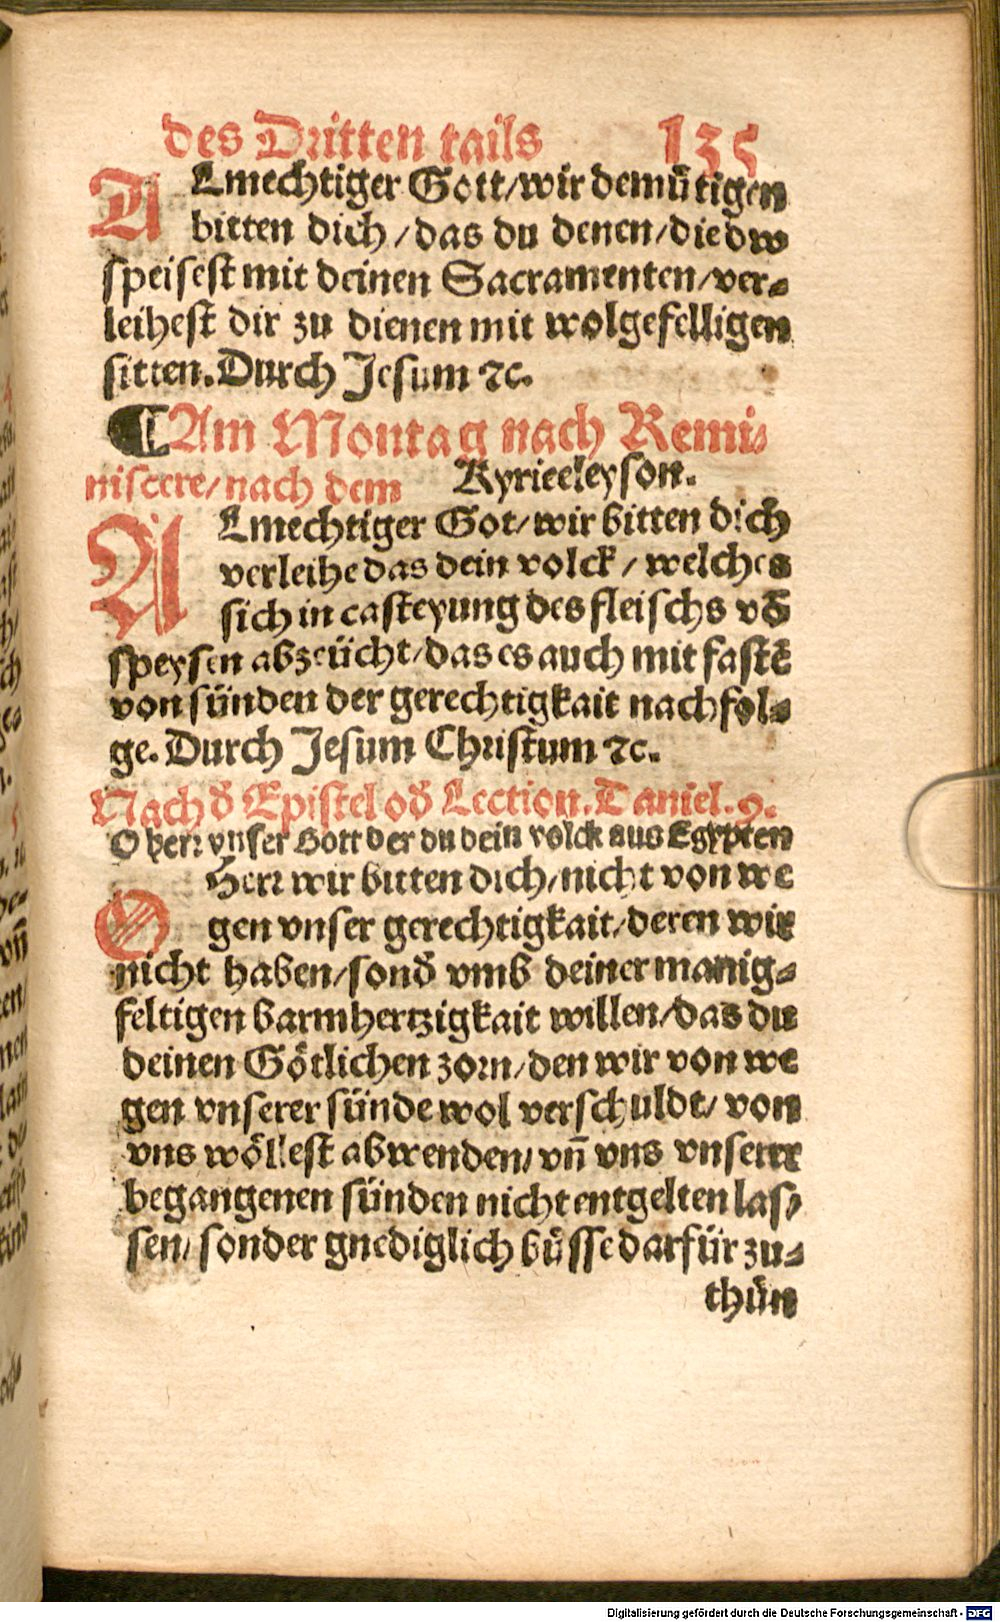 des Dritten tails 135
ALmechtiger Gott/wir demütigen
bitten dich/das du denen/die dw
speisest mit deinen Sacramenten/ver-
leihest dir zu dienen mit wolgefelligen
sitten. Durch Jesum ⁊c.
¶Am Montag nach Remi-
niscere/nach dem Kyrieeleyson.
ALmechtiger Got/wir bitten dich
verleihe das dein volck/welches
sich in casteyung des fleischs võ
speysen abzeücht/das es auch mit fastẽ
von sünden der gerechtigkait nachfol-
ge. Durch Jesum Christum ⁊c.
Nachď Epistel oď Lection. Daniel. 9.
O herr vnser Gott der du dein volck aus Egypten
O Herr wir bitten dich/nicht von we
gen vnser gerechtigkait/deren wir
nicht haben/sonď vmb deiner manig-
feltigen barmhertzigkait willen/das du
deinen Götlichen zorn/den wir von we
gen vnserer sünde wol verschuldt/von
vns wöllest abwenden/vñ vns vnserer
begangenen sünden nicht entgelten las-
sen/sonder gnediglich büsse darfür zu-
thün
Digitalisierung gefördert durch die Deutsche Forschungsgemeinschaft - DFG